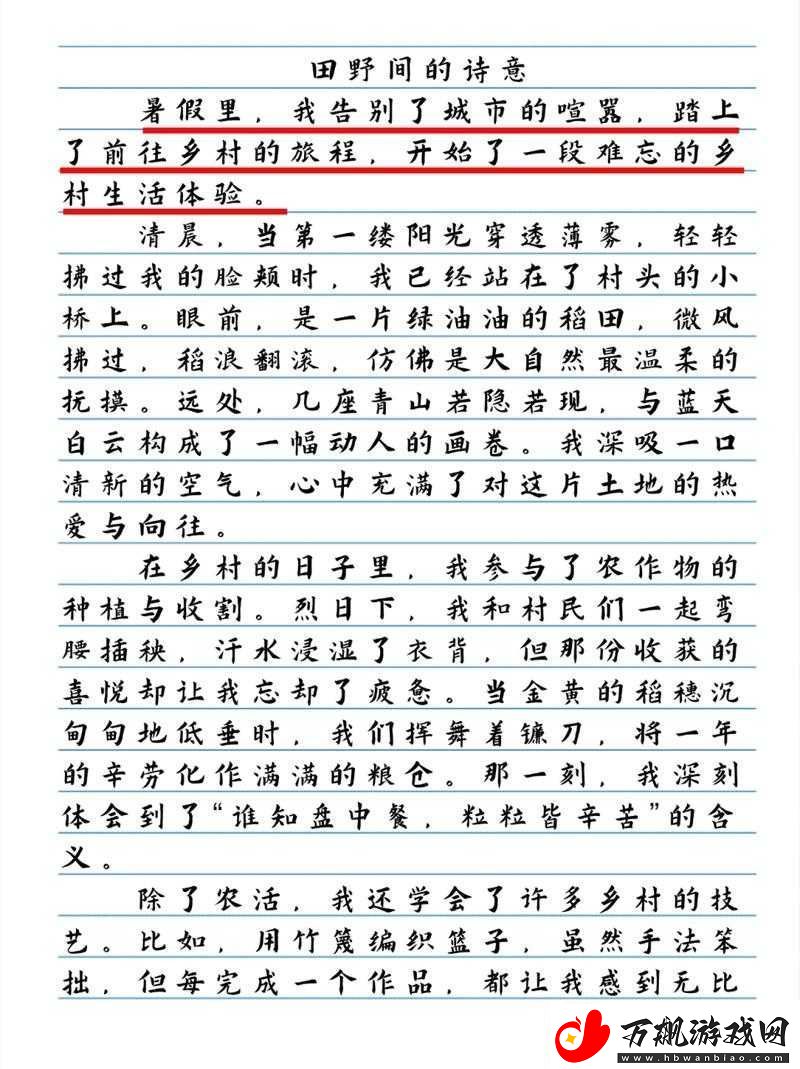 田野间的诗意
暑假里，我告别了城市的喧嚣，踏上
了前往乡村的旅程，开始了一段难忘的乡
村生活体验。
清晨，当第一缕阳光穿透薄雾，轻轻
拂过我的脸颊时，我已经站在了村头的小
桥上。眼前，是一片绿油油的稻田，微风
拂过，稻浪翻滚，仿佛是大自然最温柔的
抚摸。远处，几座青山若隐若现，与蓝天
白云构成了一幅动人的画卷。我深吸一口
清新的空气，心中充满了对这片土地的热
爱与向往。
在乡村的日子里，我参与了农作物的
种植与收割。烈日下，我和村民们一起弯
腰插秧，汗水浸湿了衣背，但那份收获的
喜悦却让我忘却了疲惫。当金黄的稻穗沉
甸甸地低垂时，我们挥舞着镰刀，将一年
的辛劳化作满满的粮仓。那一刻，我深刻
体会到了“谁知盘中餐，粒粒皆辛苦”的含
义。
除了农活，我还学会了许多乡村的技
艺。比如，用竹篾编织篮子，虽然手法笨
拙，但每完成一个作品，都让我感到无比
万飙游戏网
www.hbwanbiao.com